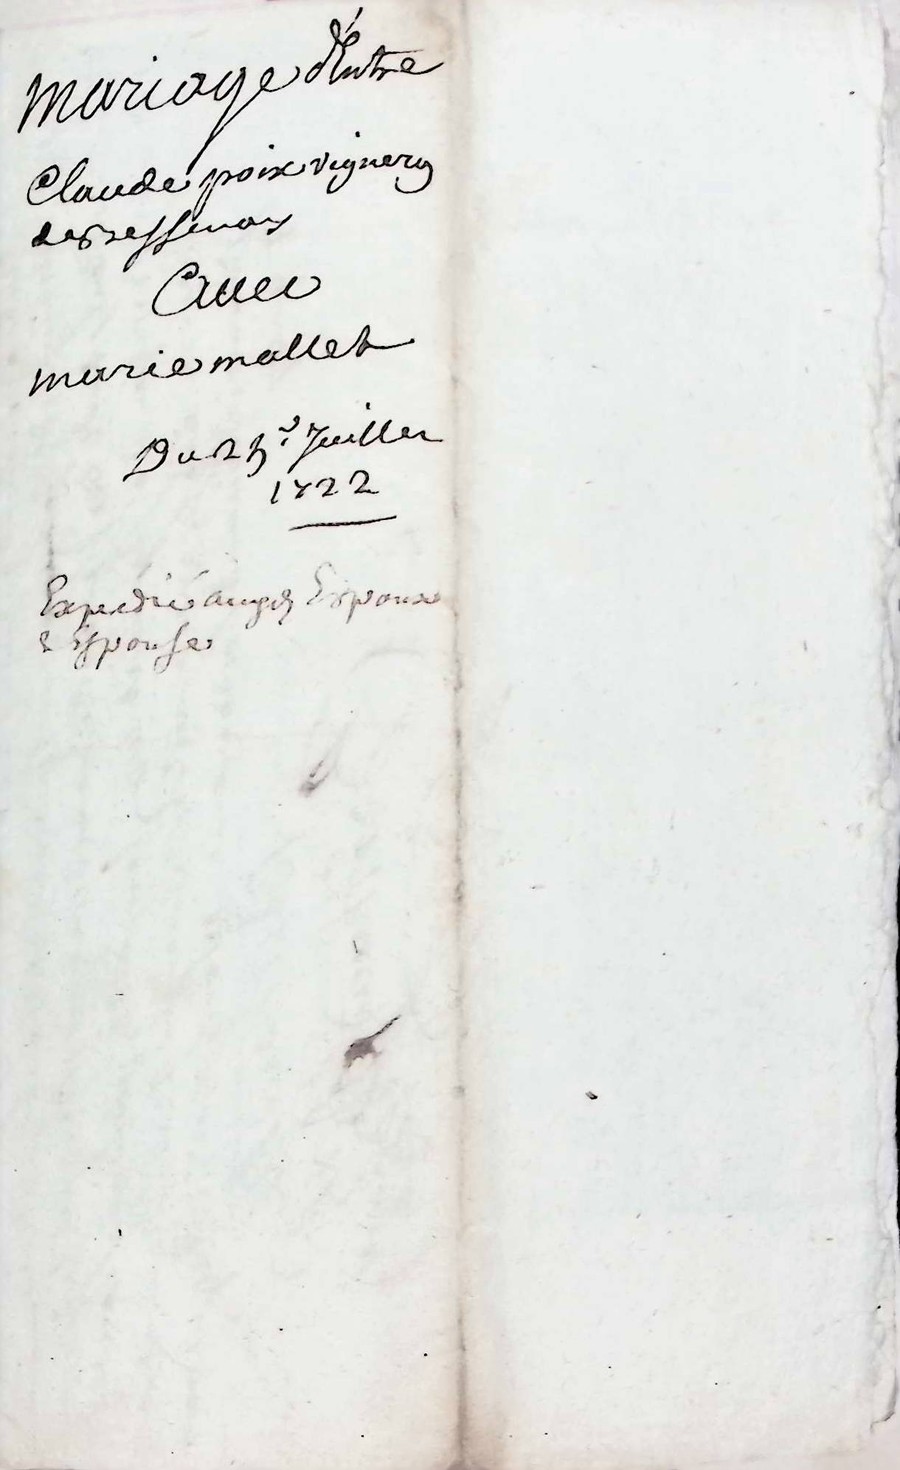 mariage d'Entre
Claude poix vigneron
Avec
marie mallet
Du 25e Juillet
1722
Expedié auxd Espoux
& Espouse